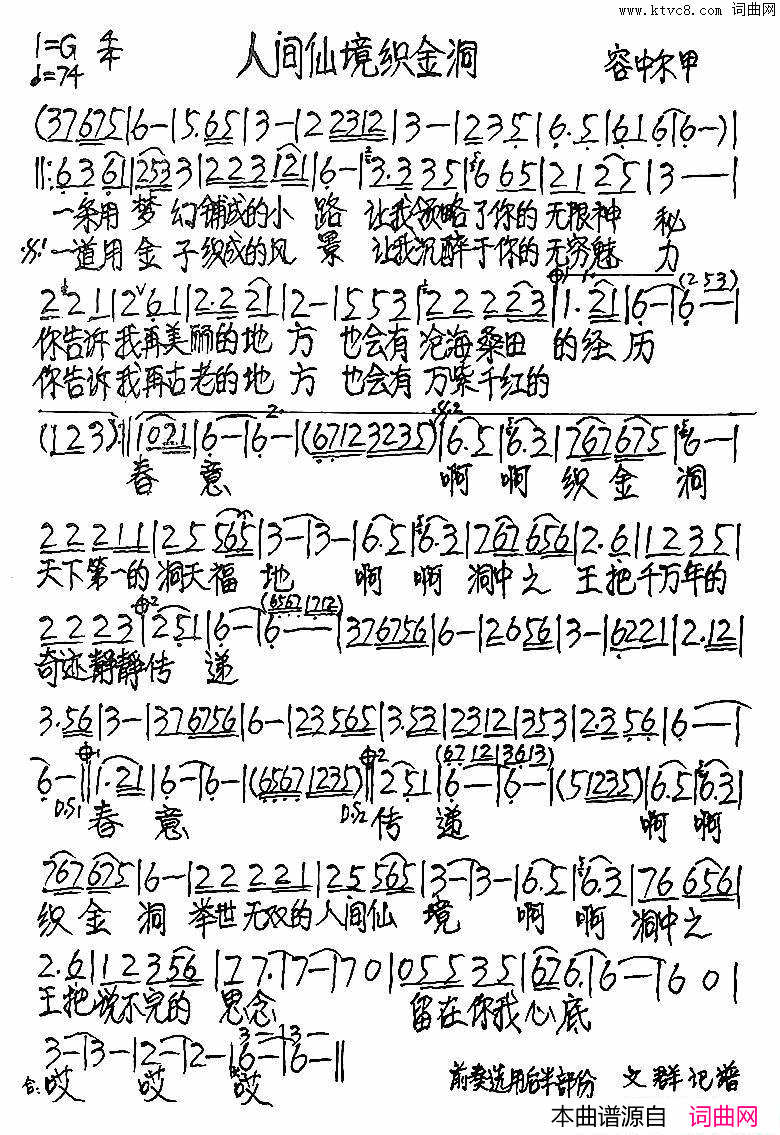 www.ktvc8.com 词曲网
1=G 4/4
♩=74
人间仙境织金洞
容中尔甲
(37675|6-|5.65|3-|22312|3-|235|6.5|616|6-)|
‖:6361|253|223121|6-|3.335|665|2125|3--|
一条用梦幻铺成的小路 让我领略了你的无限神秘
𝄋1 一道用金子织成的风景 让我沉醉于你的无穷魅力
221|2ˇ61|2.221|2-|553|22223|1.21|6-|6--|
(253)
你告诉我再美丽的地方 也会有沧海桑田的经历
你告诉我再古老的地方 也会有万紫千红的
(123):‖1021|6-|6-|(67123235)|6.5|6.3|767675|6-|
春意 啊啊织金洞
22211|25565|3-|3-|6.5|6.3|767656|2.6|1235|
天下第一的洞天福地 啊啊洞中之王把千万年的
2223|251|6-|6--|376756|6-|2656|3-|6221|2.12|
(6567 1712)
奇迹静静传递
3.56|3-|376756|6-|23565|3.53|2312|353|2.356|6--|
6-‖1.21|6-|6-|(65671235)‖251|6-|6-|(51235)|6.5|6.3|
(6712|3613)
D.S1 春意 D.S2 传递 啊啊
767675|6-|222221|25565|3-|3-|6.5|6.3|76656|
织金洞 举世无双的人间仙境 啊啊洞中之
2.6|12356|77.|7-|70|05535|676.|6-|60|
王把说不完的思念 留在你我心底
3-|3-|2-|2-|6-|6-‖
3-|3-
合:哎 哎 哎
前奏选用后半部份 文群记谱
本曲谱源自 词曲网